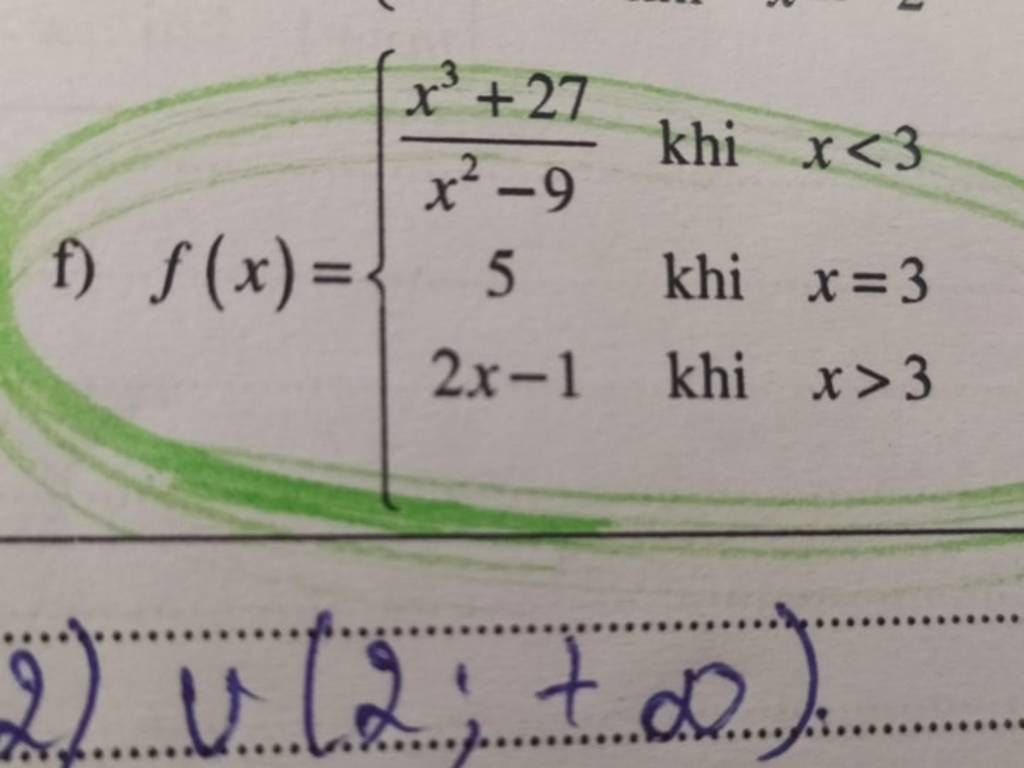 x³ + 27 / x² − 9 khi x < 3
f) f(x) = { 5 khi x = 3
2x − 1 khi x > 3
2) ∪ (2; +∞).